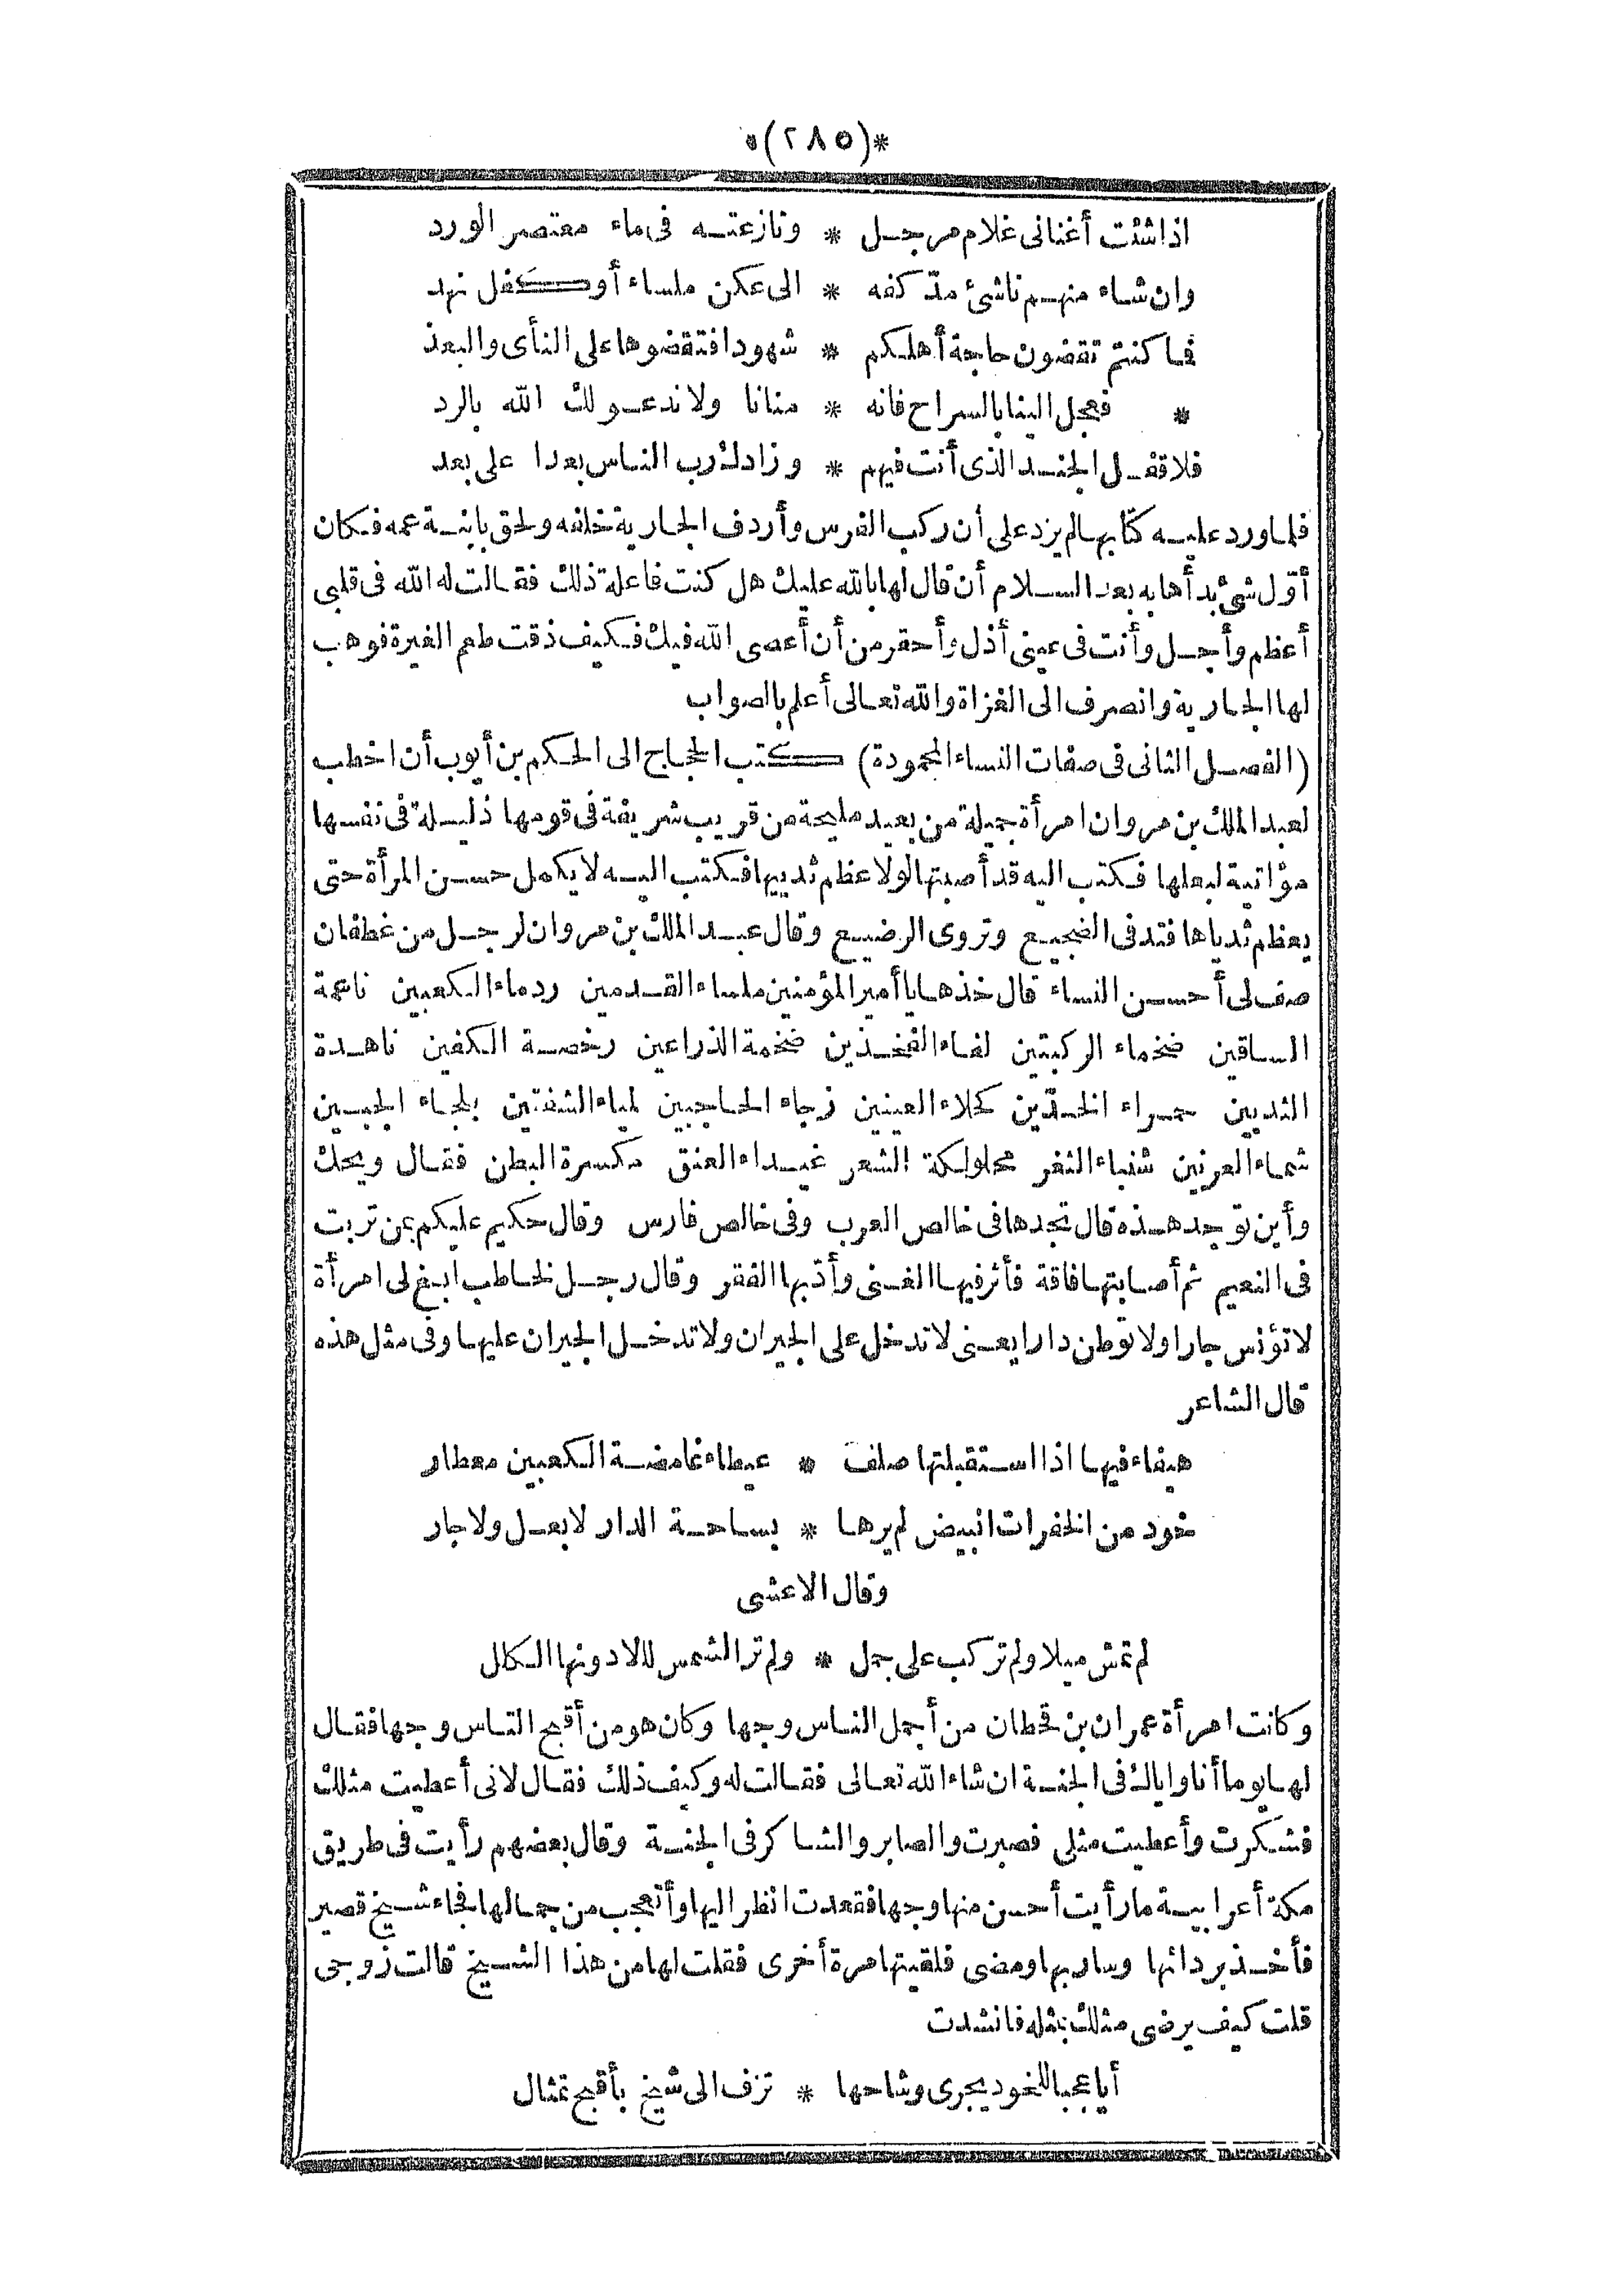 *(٢٨٥)*
اذا شئت أغنانى غلام مرجل * ونازعته فى ماء معتصر الورد
وان شاء منهم ناشئ مدّ كفه * الى عكن ملساء أو كفل نهد
فما كنتم تقضون حاجة أهلكم * شهودا فتقضوها على النأى والبعد
* فعجل الينا بالسراح فانه * منانا ولا ندعو لك الله بالرد
فلا قفل الجند الذى أنت فيهم * وزادك رب الناس بعدا على بعد
فلما ورد عليه كتابها لم يزد على أن ركب الفرس وأردف الجارية خلفه ولحق بابنة عمه فكان
أوّل شئ بدأها به بعد السلام أن قال لها بالله عليك هل كنت فاعلة ذلك فقالت له الله فى قلبى
أعظم وأجل وأنت فى عينى أذل وأحقر من أن أعصى الله فيك فكيف ذقت طعم الغيرة فوهب
لها الجارية وانصرف الى الغزاة والله تعالى أعلم بالصواب
(الفصل الثانى فى صفات النساء المحمودة) كتب الحجاج الى الحكم بن أيوب أن اخطب
لعبد الملك بن مروان امرأة جميلة من بعيد مليحة من قريب شريفة فى قومها ذليلة فى نفسها
مؤاتية لبعلها فكتب اليه قد أصبتها لولا عظم ثدييها فكتب اليه لا يكمل حسن المرأة حتى
يعظم ثدياها فتدفى الضجيع وتروى الرضيع وقال عبد الملك بن مروان لرجل من غطفان
صف لى أحسن النساء قال خذها يا أمير المؤمنين ملساء القدمين ردماء الكعبين ناعمة
الساقين ضخماء الركبتين لفاء الفخذين ضخمة الذراعين رخصة الكفين ناهدة
الثديين حمراء الخدّين كحلاء العينين زجاء الحاجبين لمياء الشفتين بلجاء الجبين
شماء العرنين شنباء الثغر محلولكة الشعر غيداء العنق مكسرة البطن فقال ويحك
وأين توجد هذه قال تجدها فى خالص العرب وفى خالص فارس وقال حكيم عليكم بمن تربت
فى النعيم ثم أصابتها فاقة فأثر فيها الغنى وأدّبها الفقر وقال رجل لخاطب ابغ لى امرأة
لا تؤنس جارا ولا توطن دارا يعنى لا تدخل على الجيران ولا تدخل الجيران عليها وفى مثل هذه
قال الشاعر
هيفاء فيها اذا استقبلتها صلف * عيطاء غامضة الكعبين معطار
خود من الخفرات البيض لم يرها * بساحة الدار لا بعل ولا جار
وقال الاعشى
لم تمش ميلا ولم تركب على جمل * ولم تر الشمس الا دونها الكلل
وكانت امرأة عمران بن قحطان من أجمل الناس وجها وكان هو من أقبح الناس وجها فقال
لها يوما أنا واياك فى الجنة ان شاء الله تعالى فقالت له وكيف ذلك فقال لانى أعطيت مثلك
فشكرت وأعطيت مثلى فصبرت والصابر والشاكر فى الجنة وقال بعضهم رأيت فى طريق
مكة أعرابية ما رأيت أحسن منها وجها فقعدت انظر اليها وأتعجب من جمالها فجاء شيخ قصير
فأخذ بردائها وسار بها ومضى فلقيتها مرة أخرى فقلت لها من هذا الشيخ قالت زوجى
قلت كيف يرضى مثلك بمثله فانشدت
أيا عجبا للخود يجرى وشاحها * تزف الى شيخ بأقبح تمثال